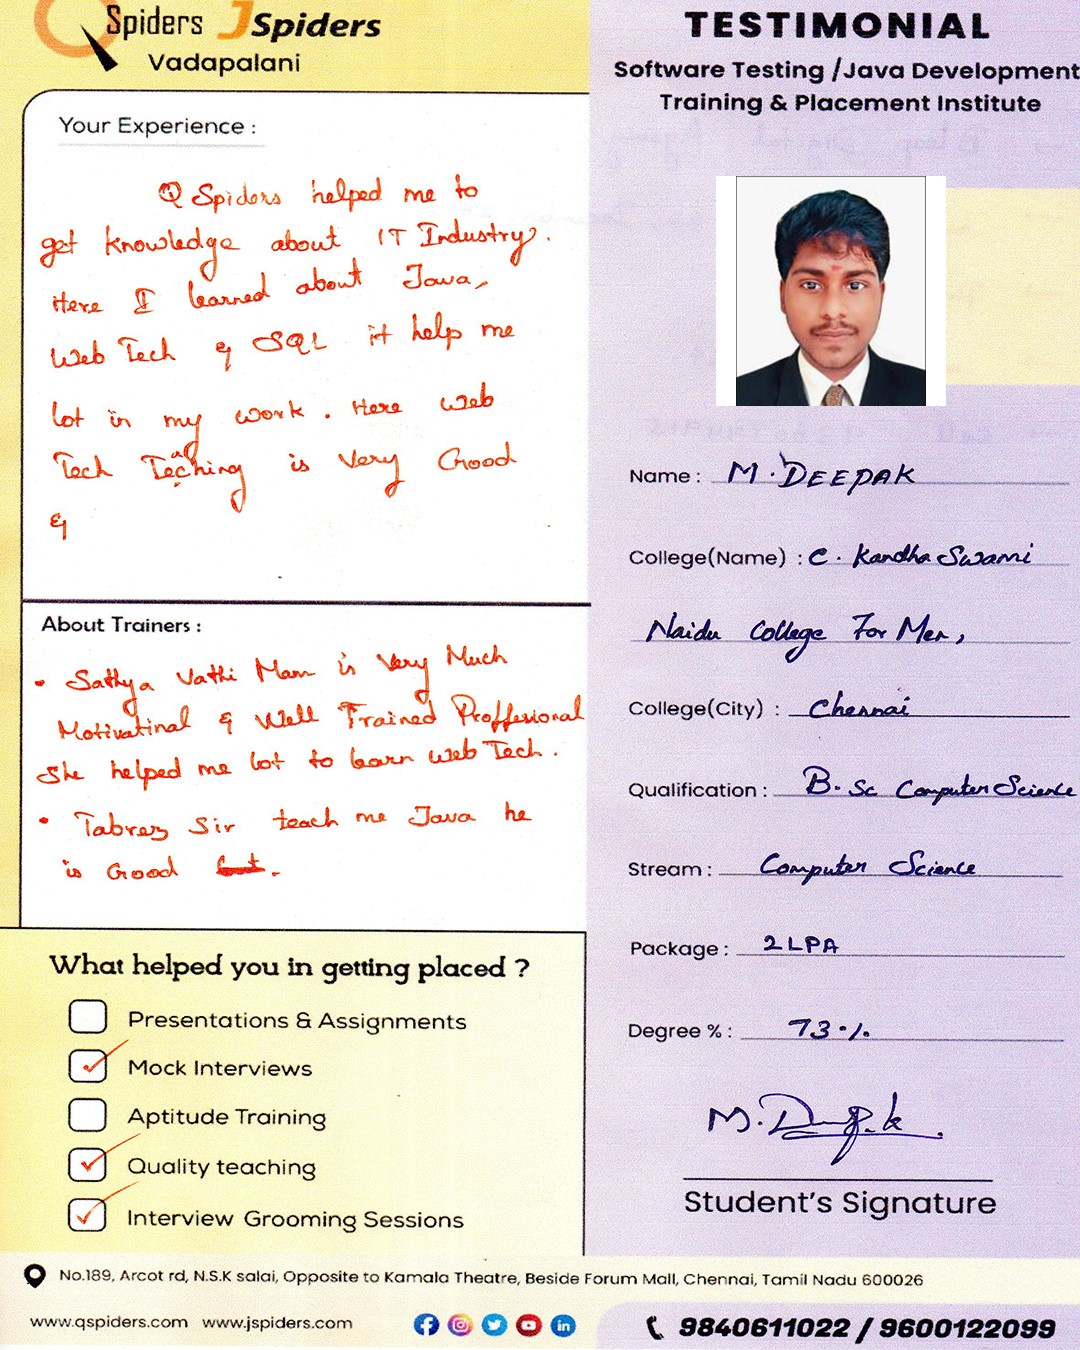 Spiders JSpiders
Vadapalani
Your Experience :
Q Spiders helped me to
get knowledge about IT Industry.
Here I learned about Java,
Web Tech & SQL it help me
lot in my work. Here web
Tech Teaching is Very Good
&
About Trainers :
• Sathya Vathi Mam is Very Much
Motivatinal & Well Trained Proffesional
She helped me lot to learn web Tech.
• Tabrez Sir teach me Java he
is Good but.
What helped you in getting placed ?
Presentations & Assignments
Mock Interviews
Aptitude Training
Quality teaching
Interview Grooming Sessions
TESTIMONIAL
Software Testing /Java Development
Training & Placement Institute
Name : M. DEEPAK
College(Name) : C. Kandha Swami
Naidu College For Men,
College(City) : Chennai
Qualification : B. Sc Computer Science
Stream : Computer Science
Package : 2 LPA
Degree % : 73 %
M. Deepak
Student's Signature
No.189, Arcot rd, N.S.K salai, Opposite to Kamala Theatre, Beside Forum Mall, Chennai, Tamil Nadu 600026
www.qspiders.com www.jspiders.com
9840611022 / 9600122099